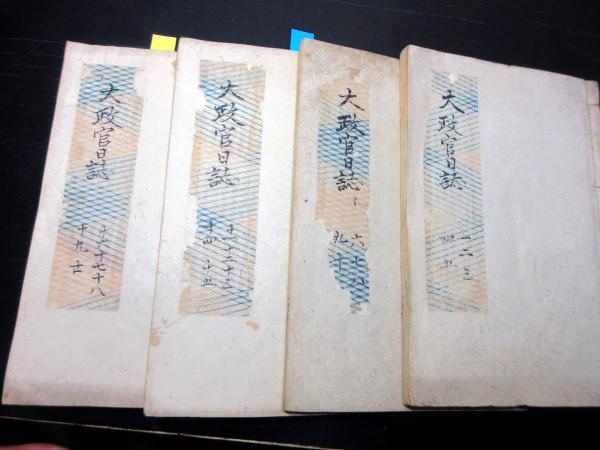 大政官日誌
一二三
四五
大政官日誌
六七八
九十
大政官日誌
十一十二十三
十四十五
大政官日誌
十六十七十八
十九廿